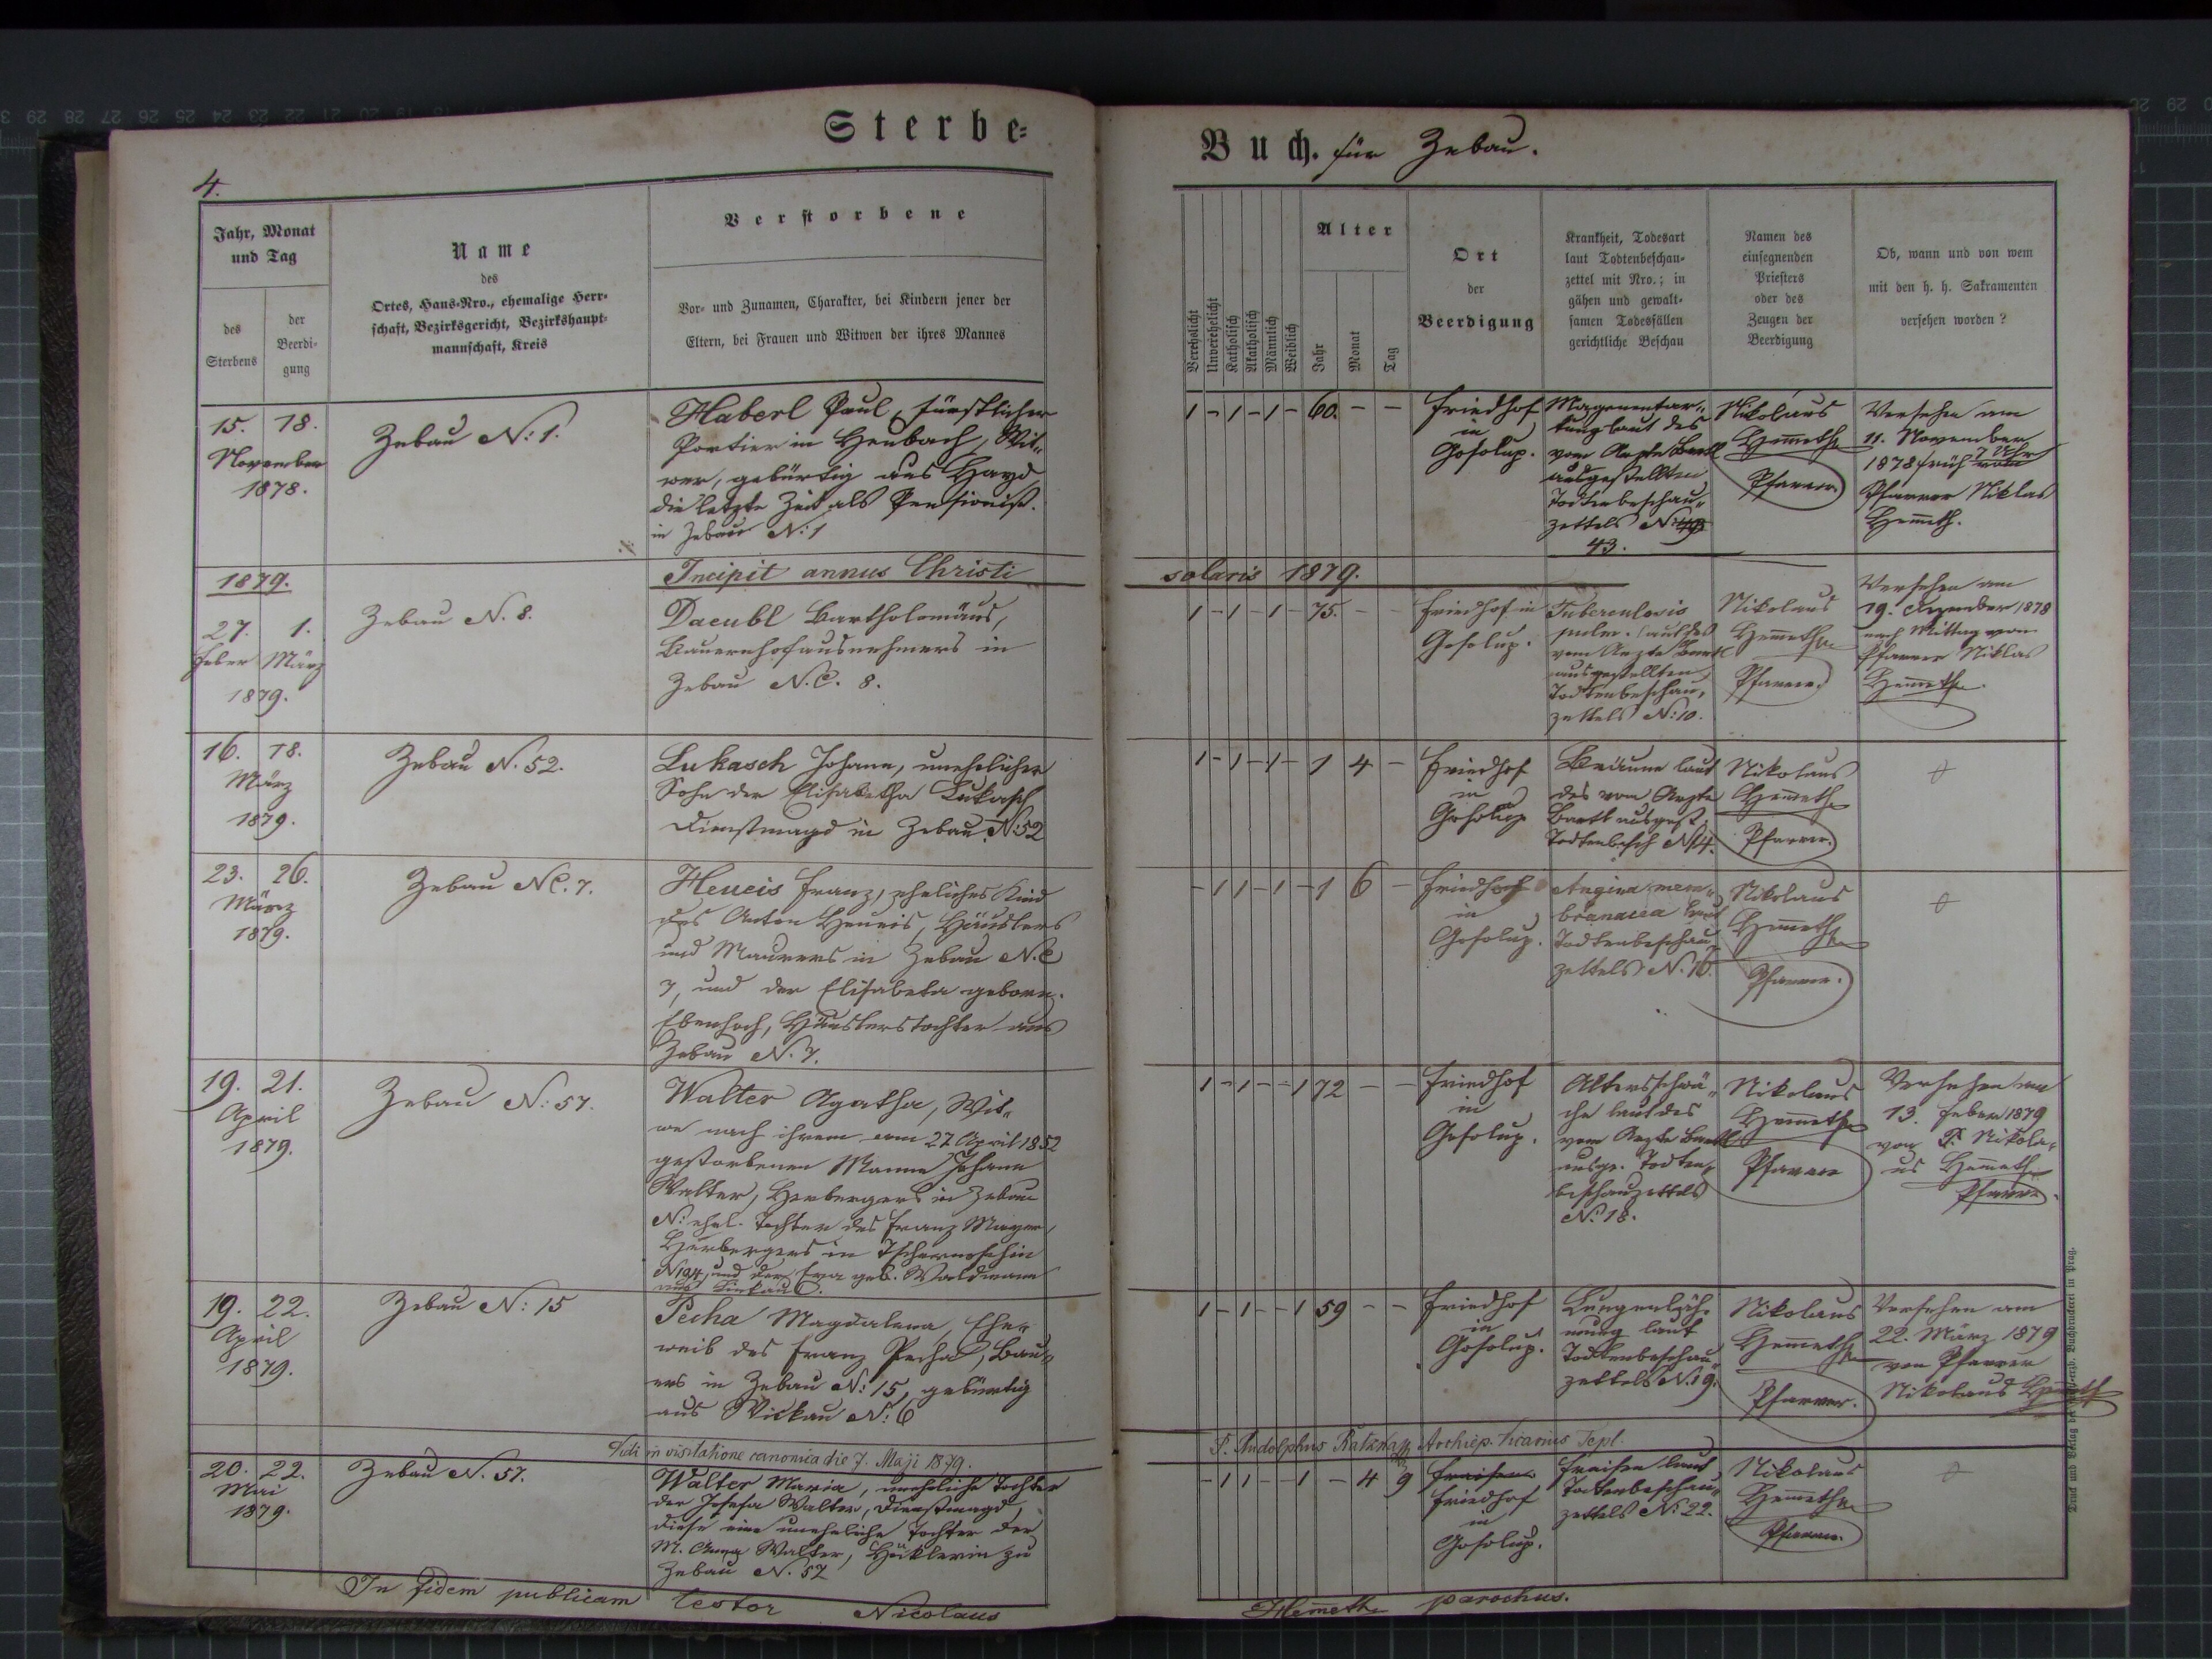 Sterbe-
Buch. für Zebau.
4.
Jahr, Monat
und Tag
des
Sterbens
der
Beerdi-
gung
Name
des
Ortes, Haus-Nro., ehemalige Herr-
schaft, Bezirksgericht, Bezirkshaupt-
mannschaft, Kreis
Verstorbene
Vor- und Zunamen, Charakter, bei Kindern jener der
Eltern, bei Frauen und Witwen der ihres Mannes
Verehelicht
Unverehelicht
Katholisch
Akatholisch
Männlich
Weiblich
Alter
Jahr
Monat
Tag
Ort
der
Beerdigung
Krankheit, Todesart
laut Todtenbeschau-
zettel mit Nro.; in
gähen und gewalt-
samen Todesfällen
gerichtliche Beschau
Namen des
einsegnenden
Priesters
oder des
Zeugen der
Beerdigung
Ob, wann und von wem
mit den h. h. Sakramenten
versehen worden?
15. 18.
November
1878.
Zebau N: 1.
Haberl Paul, fürstlicher
Portier in Heubach, Wit„
wer, gebürtig aus Hayd
die letzte Zeit als Pensionist.
in Zebau N: 1
1 - 1 - 1 - 60. - -
Friedhof
in
Gosolup.
laut des
vom Arzte Bartl
ausgestellten
Todtenbeschau„
zettels N:
43.
Nikolaus
Hem̄eth
Pfarrer.
Versehen am
11. November
1878 früh 7 Uhr
vom
Pfarrer Niklas
Hem̄eth.
1879.
Incipit annus Christi
solaris 1879.
27. 1.
Feber März
1879.
Zebau N. 8.
Daeubl Bartholomäus,
Bauernhofausnehmers in
Zebau N.C. 8.
1 - 1 - 1 - 75. - -
Friedhof in
Gosolup.
Tuberculosis
pulm. laut des
vom Arzte Bartl
ausgestellten
Todtenbeschau„
zettels N: 10.
Nikolaus
Hem̄eth
Pfarrer.
Versehen am
19. Dezember 1878
nach Mittag vom
Pfarrer Niklas
Hem̄eth.
16. 18.
März
1879.
Zebau N. 52.
Lukasch Johann, unehelicher
Sohn der Elisabetha Lukasch
Dienstmagd in Zebau N: 52
1 - 1 - 1 - 1 4 -
Friedhof
in
Gosolup
Bräune laut
des vom Arzte
Bartl ausgest.
Todtenbesch N. 14.
Nikolaus
Hem̄eth
Pfarrer.
23. 26.
März
1879.
Zebau NC. 7.
Heucis Franz, eheliches Kind
des Anton Heucis, Häuslers
und Maurers in Zebau N.C
7, und der Elisabeta geborn.
Ebenhoch, Häuslerstochter aus
Zebau N. 7.
- 1 1 - 1 - 1 6 -
Friedhof
in
Gosolup.
Angina mem„
branacea laut
Todtenbeschau„
zettels N. 16.
Nikolaus
Hem̄eth
Pfarrer.
19. 21.
April
1879.
Zebau N: 57.
Walter Agatha, Wit„
we nach ihrem am 27 April 1852
gestorbenen Manne Johann
Walter, Herbergers in Zebau
N: ehel. Tochter des Franz Mayer,
Herbergers in Tschernoschin
N 194, und der Eva geb. Waldmann
1 - 1 - - 1 72 - -
Friedhof
in
Gosolup.
Altersschwä„
che laut des
vom Arzte Bartl
ausge. Todten„
beschauzettels
N: 18.
Nikolaus
Hem̄eth
Pfarrer
Versehen am
13. Feber 1879
von P. Nikola„
us Hem̄eth
Pfarrer.
19. 22.
April
1879.
Zebau N: 15
Pecha Magdalena, Ehe„
weib des Franz Pecha, Bau„
ers in Zebau N: 15, gebürtig
aus Wickau N: 6
1 - 1 - - 1 59 - -
Friedhof
in
Gosolup.
Lungenläh„
mung laut
Todtenbeschau„
zettels N. 19.
Nikolaus
Hem̄eth
Pfarrer.
Versehen am
22. März 1879
von Pfarrer
Nikolaus Hem̄eth
Vidi in visitatione canonica die 7. Maji 1879.
P. Rudolphus Archiep. Vicarius Tepl.
20. 22.
Mai
1879.
Zebau N. 57.
Walter Maria, uneheliche Tochter
der Josefa Walter, Dienstmagd,
diese eine uneheliche Tochter der
M. Anna Walter, Häuslerin zu
Zebau N. 57
- 1 1 - - 1 - 4 9
Fraisen
Friedhof
in
Gosolup.
Fraisen laut
Todtenbeschau„
zettels N: 22.
Nikolaus
Hem̄eth
Pfarrer.
In fidem publicam testor Nicolaus
Hem̄eth parochus.